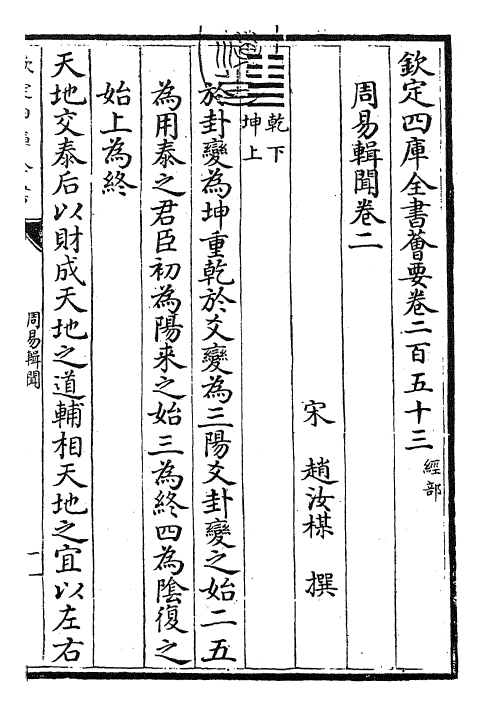 欽定四庫全書薈要卷二百五十三 經部
周易輯聞卷二
宋 趙汝楳 撰
乾下
坤上
於卦變為坤重乾於爻變為三陽爻卦變之始二五
為用泰之君臣初為陽来之始三為終四為陰復之
始上為終
天地交泰后以財成天地之道輔相天地之宜以左右
周易輯聞
一